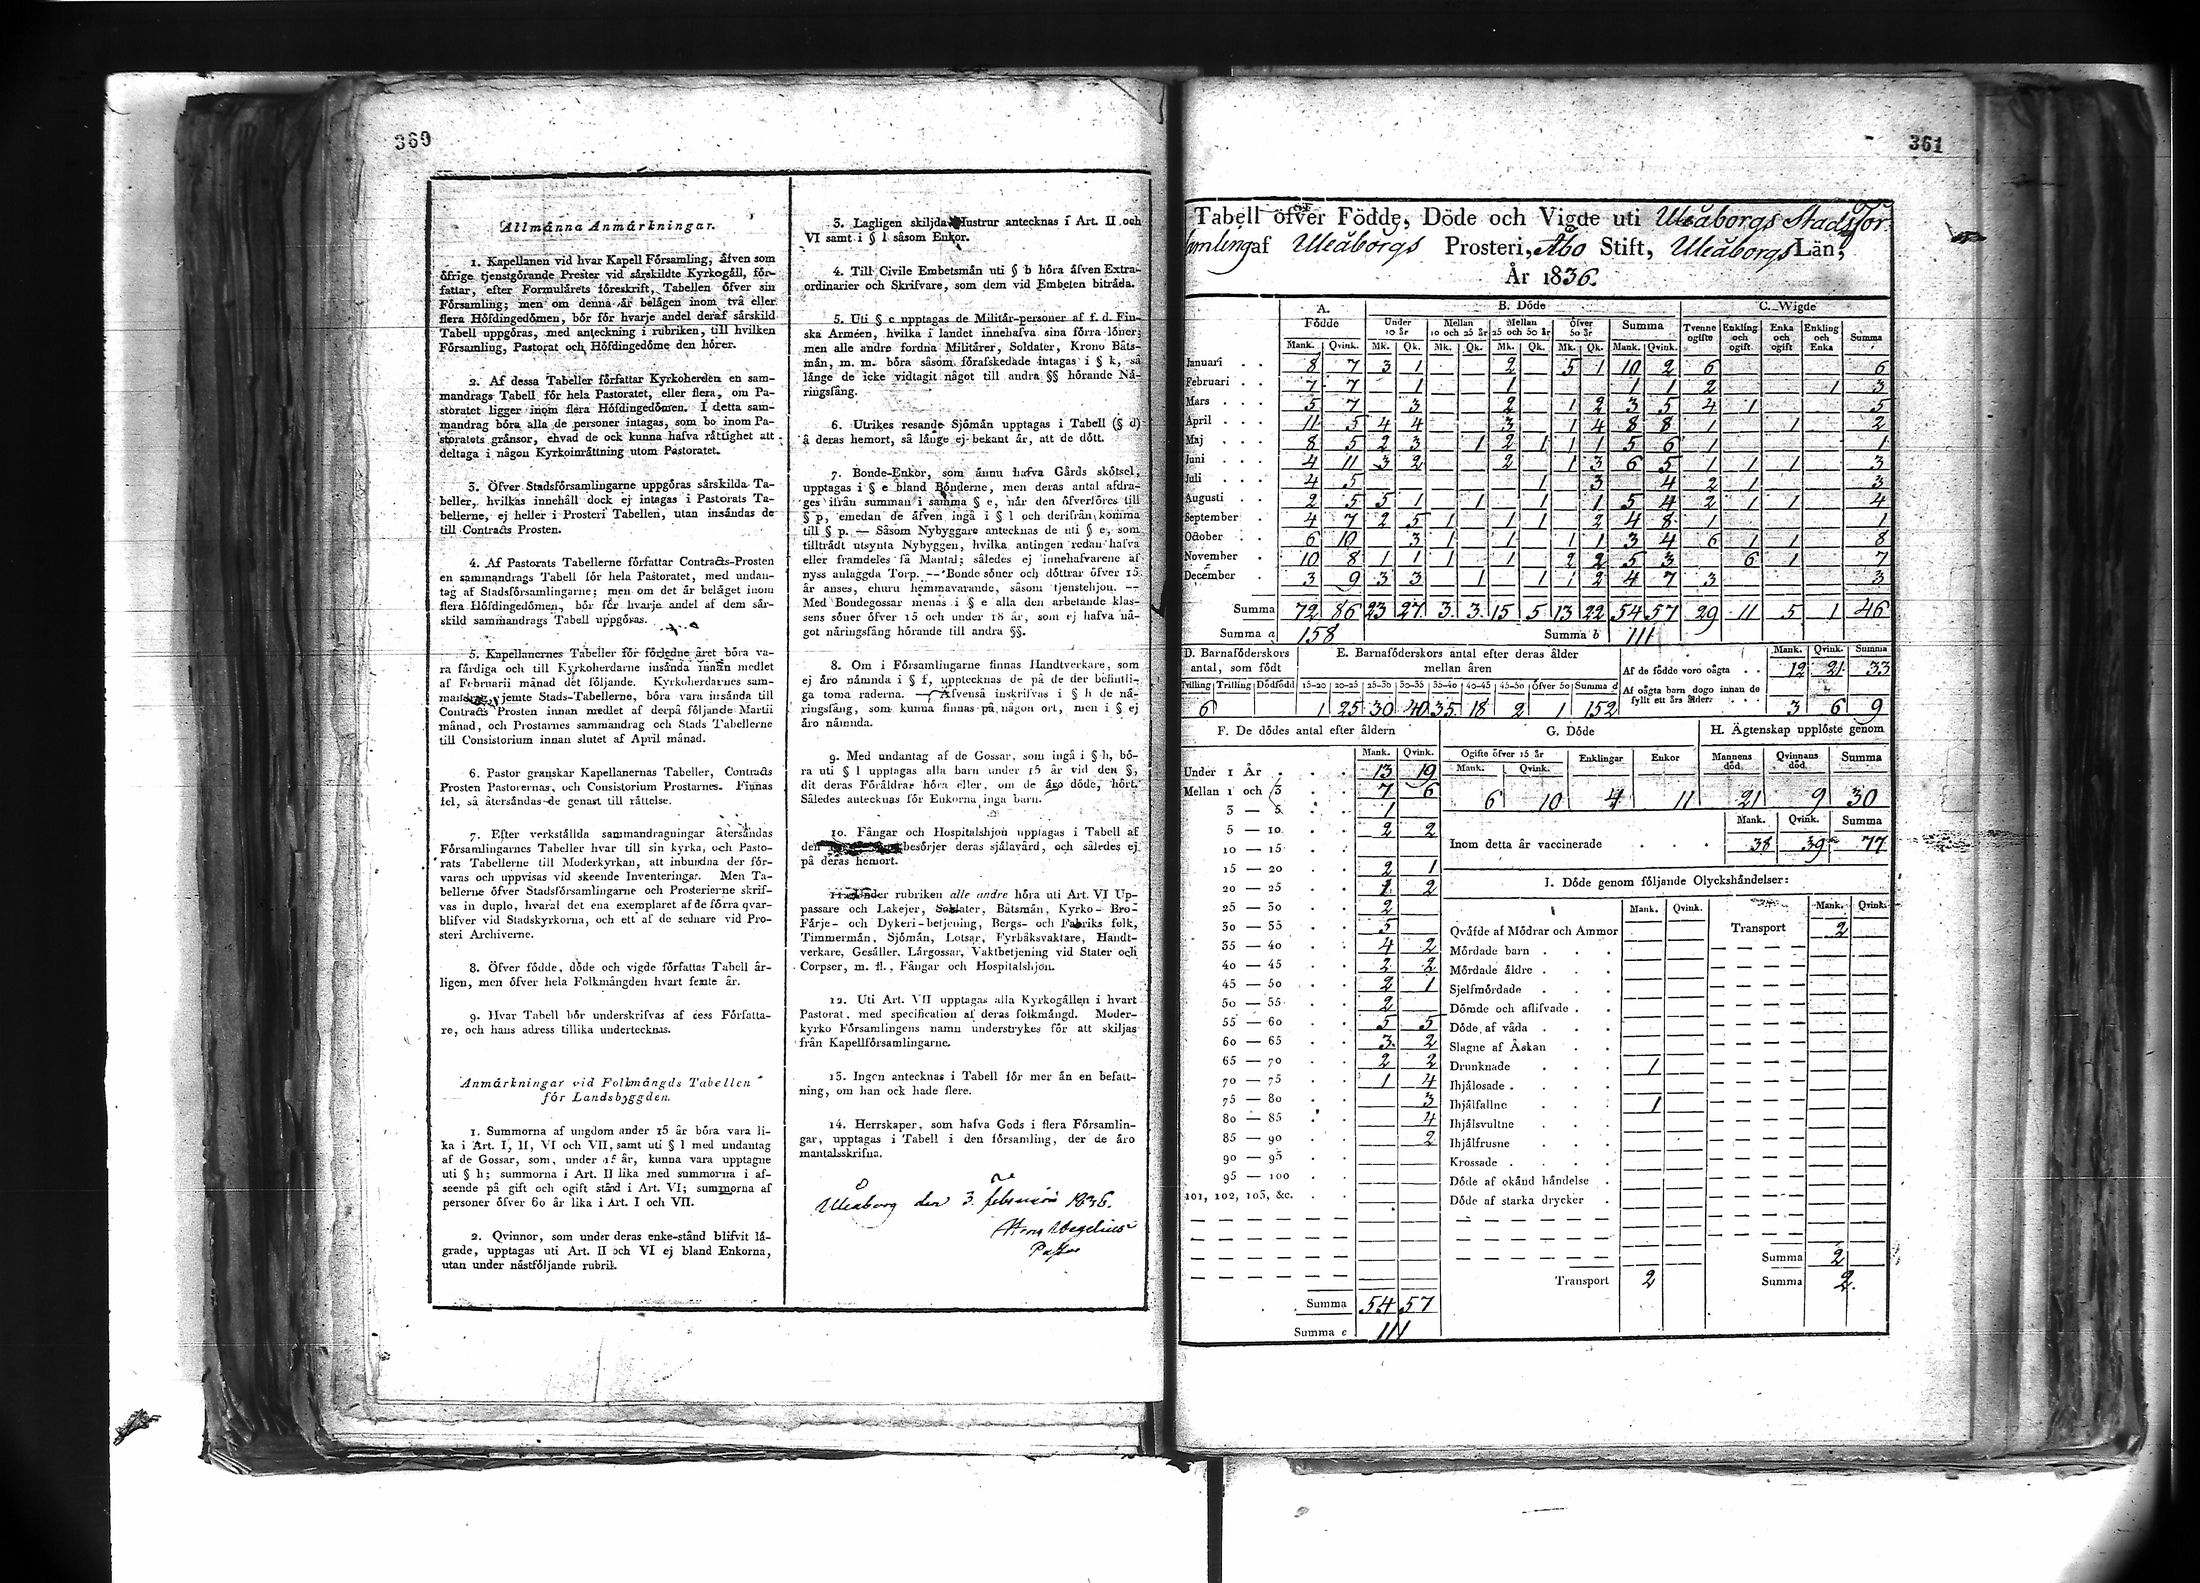 369
Allmánna Anmárkningar.
1. Kapellanen vid hvar Kapell Fórsamling, áfven som
ófrige tjenstgórande Prester vid sárskildte Kyrkogáll, fór-
fattar, efter Formulárets fóreskrift, Tabellen ófver sin
Fórsamling; men om denna ár belágen inom två eller
flera Hófdingedómen, bór fór hvarje andel deraf sárskild
Tabell uppgóras, med anteckning i rubriken, till hvilken
Fórsamling, Pastorat och Hófdingedóme den hórer.
2. Af dessa Tabeller fórfattar Kyrkoherden en sam-
mandrags Tabell fór hela Pastoratet, eller flera, om Pa-
storatet ligger inom flera Hófdingedómen. I detta sam-
mandrag bóra alla de personer intagas, som bo inom Pa-
storatets gránsor, ehvad de ock kunna hafva ráttighet att
deltaga i någon Kyrkoinráttning utom Pastoratet.
3. Öfver Stadsfórsamlingarne uppgóras sárskilda Ta-
beller, hvilkas innehåll dock ej intagas i Pastorats Ta-
bellerne, ej heller i Prosteri Tabellen, utan insándas de
till Contracts Prosten.
4. Af Pastorats Tabellerne fórfattar Contracts-Prosten
en sammandrags Tabell fór hela Pastoratet, med undan-
tag af Stadsfórsamlingarne; men om det ár beláget inom
flera Hófdingedómen, bór fór hvarje andel af dem sár-
skild sammandrags Tabell uppgóras.
5. Kapellanernes Tabeller fór fórledne året bóra va-
ra fárdiga och till Kyrkoherdarne insánda innan medlet
af Februarii månad det fóljande. Kyrkoherdarnes sam-
mandrag, jemte Stads-Tabellerne, bóra vara insánda till
Contracts Prosten innan medlet af derpå fóljande Martii
månad, och Prostarnes sammandrag och Stads Tabellerne
till Consistorium innan slutet af April månad.
6. Pastor granskar Kapellanernas Tabeller, Contracts
Prosten Pastorernas, och Consistorium Prostarnes. Finnas
fel, så återsándas de genast till ráttelse.
7. Efter verkstállda sammandragningar återsándas
Fórsamlingarnes Tabeller hvar till sin kyrka, och Pasto-
rats Tabellerne till Moderkyrkan, att inbundna der fór-
varas och uppvisas vid skeende Inventeringar. Men Ta-
bellerne ófver Stadsfórsamlingarne och Prosterierne skrif-
vas in duplo, hvaraf det ena exemplaret af de fórra qvar-
blifver vid Stadskyrkorna, och ett af de sednare vid Pro-
steri Archiverne.
8. Öfver fódde, dóde och vigde fórfattas Tabell år-
ligen, men ófver hela Folkmángden hvart femte år.
9. Hvar Tabell bór underskrifvas af dess Fórfatta-
re, och hans adress tillika undertecknas.
Anmárkningar vid Folkmángds Tabellen
fór Landsbyggden.
1. Summorna af ungdom under 15 år bóra vara li-
ka i Art. I, II, VI och VII, samt uti § l med undantag
af de Gossar, som, under 15 år, kunna vara upptagne
uti § h; summorna i Art. II lika med summorna i af-
seende på gift och ogift stånd i Art. VI; summorna af
personer ófver 60 år lika i Art. I och VII.
2. Qvinnor, som under deras enke-stånd blifvit lá-
grade, upptagas uti Art. II och VI ej bland Enkorna,
utan under nástfóljande rubrik.
3. Lagligen skiljda Hustrur antecknas i Art. II och
VI samt i § l såsom Enkor.
4. Till Civile Embetsmán uti § b hóra áfven Extra-
ordinarier och Skrifvare, som dem vid Embeten bitráda.
5. Uti § c upptagas de Militár-personer af f. d. Fin-
ska Arméen, hvilka i landet innehafva sina fórra lóner;
men alle andre fordna Militárer, Soldater, Krono Båts-
mán, m. m. bóra såsom fórafskedade intagas i § k, så
lánge de icke vidtagit något till andra §§ hórande Ná-
ringsfång.
6. Utrikes resande Sjómán upptagas i Tabell (§ d)
å deras hemort, så lánge ej bekant ár, att de dótt.
7. Bonde-Enkor, som ánnu hafva Gårds skótsel,
upptagas i § e bland Bónderne, men deras antal afdra-
ges ifrån summan i samma § e, når den ófverfóres till
§ p, emedan de áfven ingå i § l och derifrån komma
till § p. — Såsom Nybyggare antecknas de uti § e, som
tilltrádt utsynta Nybyggen, hvilka antingen redan hafva
eller framdeles få Mantal; således ej innehafvarene af
nyss anlaggda Torp. — Bonde sóner och dóttrar ófver 15
år anses, ehuru hemmavarande, såsom tjenstehjon. —
Med Bondegossar menas i § e alla den arbetande klas-
sens sóner ófver 15 och under 18 år, som ej hafva nå-
got náringsfång hórande till andra §§.
8. Om i Fórsamlingarne finnas Handtverkare, som
ej áro námnda i § f, upptecknas de på de der befintli-
ga toma raderna. — Áfvenså inskrifvas i § h de ná-
ringsfång, som kunna finnas på någon ort, men i § ej
áro námnda.
9. Med undantag af de Gossar, som ingå i § h, bó-
ra uti § l upptagas alla barn under 15 år vid den §,
dit deras Fóráldrar hóra eller, om de áro dóde, hórt.
Således antecknas fór Enkorna inga barn.
10. Fångar och Hospitalshjon upptagas i Tabell af
den besórjer deras sjálavård, och således ej
på deras hemort.
11. Under rubriken alle andre hóra uti Art. VI Up-
passare och Lakejer, Soldater, Båtsmán, Kyrko- Bro-
Fárje- och Dykeri-betjening, Bergs- och Fabriks folk,
Timmermán, Sjómán, Lotsar, Fyrbåksvaktare, Handt-
verkare, Gesáller, Lárgossar, Vaktbetjening vid Stater och
Corpser, m. fl., Fångar och Hospitalshjon.
12. Uti Art. VII upptagas alla Kyrkogállen i hvart
Pastorat, med specification af deras folkmángd. Moder-
kyrko Fórsamlingens namn understrykes fór att skiljas
från Kapellfórsamlingarne.
13. Ingen antecknas i Tabell fór mer án en befatt-
ning, om han ock hade flere.
14. Herrskaper, som hafva Gods i flera Fórsamlin-
gar, upptagas i Tabell i den fórsamling, der de áro
mantalsskrifna.
Uleåborg den 3. februarii 1836.
Pastor
361
Tabell öfver Födde, Döde och Vigde uti Uleåborgs Stadsför-
samling af Uleåborgs Prosteri, Åbo Stift, Uleåborgs Län,
År 1836.
A. Fódde B. Dóde C. Wigde
Under 10 år Mellan 10 och 25 år Mellan 25 och 50 år Öfver 50 år Summa Tvenne ogifte Enkling och ogift Enka och ogift Enkling och Enka Summa
Mank. Qvink. Mk. Qk. Mk. Qk. Mk. Qk. Mk. Qk. Mank. Qvink.
Januari 8 7 3 1 2 5 1 10 2 6 6
Februari 7 7 1 1 1 1 2 1 3
Mars 5 7 3 2 1 2 3 5 4 1 5
April 11 5 4 4 3 1 4 8 8 1 1 2
Maj 8 5 2 3 1 2 1 1 1 5 6 1 1
Juni 4 11 3 2 2 1 3 6 5 1 1 1 3
Juli 4 5 1 3 4 2 1 3
Augusti 2 5 5 1 1 1 1 5 4 2 1 1 4
September 4 7 2 5 1 1 1 2 4 8 1 1
October 6 10 3 1 1 1 1 3 4 6 1 1 8
November 10 8 1 1 1 1 2 2 5 3 6 1 7
December 3 9 3 3 1 1 1 2 4 7 3 3
Summa 72 86 23 27 3 3 15 5 13 22 54 57 29 11 5 1 46
Summa a 158 Summa b 111
D. Barnafóderskors antal, som fódt
Tvilling Trilling Dódfódd
6
E. Barnafóderskors antal efter deras ålder mellan åren
15-20 20-25 25-30 30-35 35-40 40-45 45-50 Öfver 50 Summa d
1 25 30 40 35 18 2 1 152
Mank. Qvink. Summa
Af de fódde voro oágta 12 21 33
Af oágta barn dogo innan de
fyllt ett års ålder 3 6 9
F. De dódes antal efter åldern
Mank. Qvink.
Under 1 År 13 19
Mellan 1 och 3 7 6
3 — 5 1
5 — 10 2 2
10 — 15
15 — 20 2 1
20 — 25 1 2
25 — 30 2
30 — 35 5
35 — 40 4 2
40 — 45 2 2
45 — 50 2 1
50 — 55 2
55 — 60 5 5
60 — 65 3 2
65 — 70 2 2
70 — 75 1 4
75 — 80 3
80 — 85 4
85 — 90 2
90 — 95
95 — 100
101, 102, 103, &c.
Summa 54 57
Summa c 111
G. Dóde
Ogifte ófver 15 år Enklingar Enkor
Mank. Qvink.
6 10 4 11
H. Ágtenskap upplóste genom
Mannens dód Qvinnans dód Summa
21 9 30
Mank. Qvink. Summa
Inom detta år vaccinerade 38 39 77
I. Dóde genom fóljande Olyckshándelser:
Mank. Qvink. Mank. Qvink.
Qváfde af Módrar och Ammor Transport 2
Mórdade barn
Mórdade áldre
Sjelfmórdade
Dómde och aflifvade
Dóde af våda
Slagne af Åskan
Drunknade 1
Ihjálosade
Ihjálfallne 1
Ihjálsvultne
Ihjálfrusne
Krossade
Dóde af okánd hándelse
Dóde af starka drycker
Summa 2
Transport 2 Summa 2.